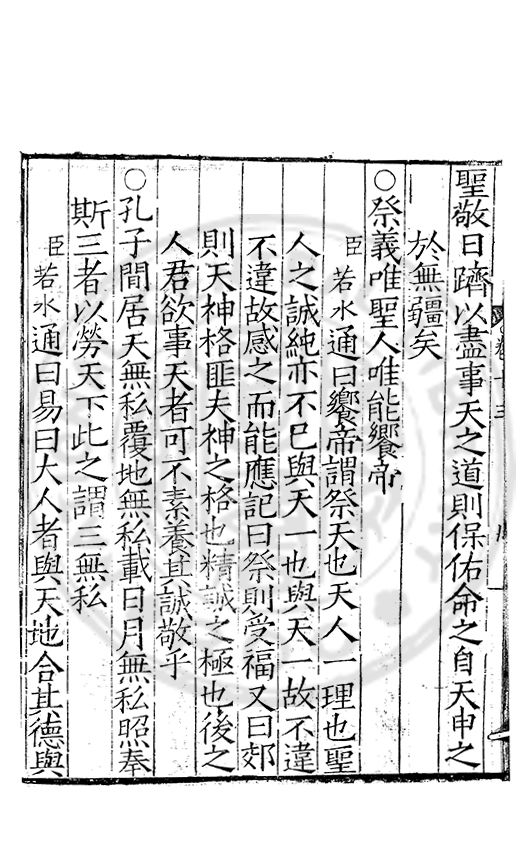 聖敬日躋以盡事天之道則保佑命之自天申之
於無疆矣
○祭義唯聖人唯能饗帝
臣若水通曰饗帝謂祭天也天人一理也聖
人之誠純亦不已與天一也與天一故不違
不違故感之而能應記曰祭則受福又曰郊
則天神格匪夫神之格也精誠之極也後之
人君欲事天者可不素養其誠敬乎
○孔子閒居天無私覆地無私載日月無私照奉
斯三者以勞天下此之謂三無私
臣若水通曰易曰大人者與天地合其德與